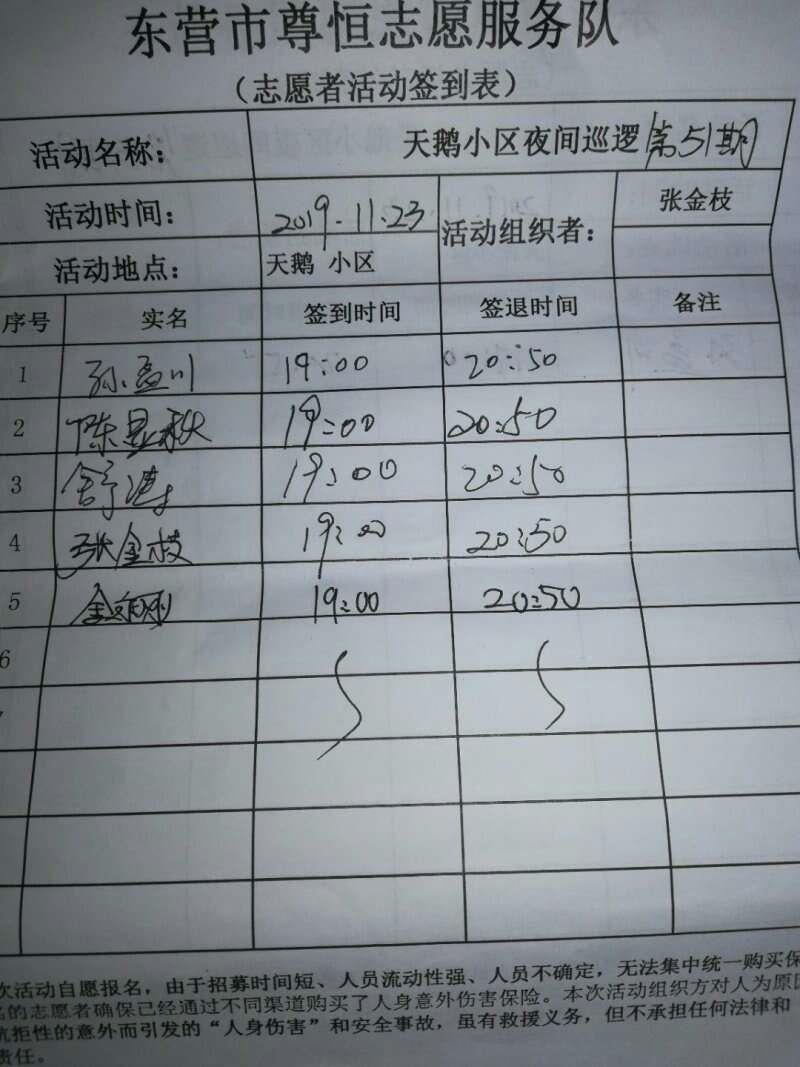 东营市尊恒志愿服务队
（志愿者活动签到表）
活动名称： 天鹅小区夜间巡逻第51期
活动时间： 2019.11.23 活动组织者： 张金枝
活动地点： 天鹅 小区
序号 实名 签到时间 签退时间 备注
1 孙孟川 19:00 20:50
2 陈显秋 19:00 20:50
3 舒 19:00 20:50
4 张金枝 19:00 20:50
5 金 19:00 20:50
6
次活动自愿报名，由于招募时间短、人员流动性强、人员不确定，无法集中统一购买保
名的志愿者确保已经通过不同渠道购买了人身意外伤害保险。本次活动组织方对人为原因
抗拒性的意外而引发的“人身伤害”和安全事故，虽有救援义务，但不承担任何法律和
责任。